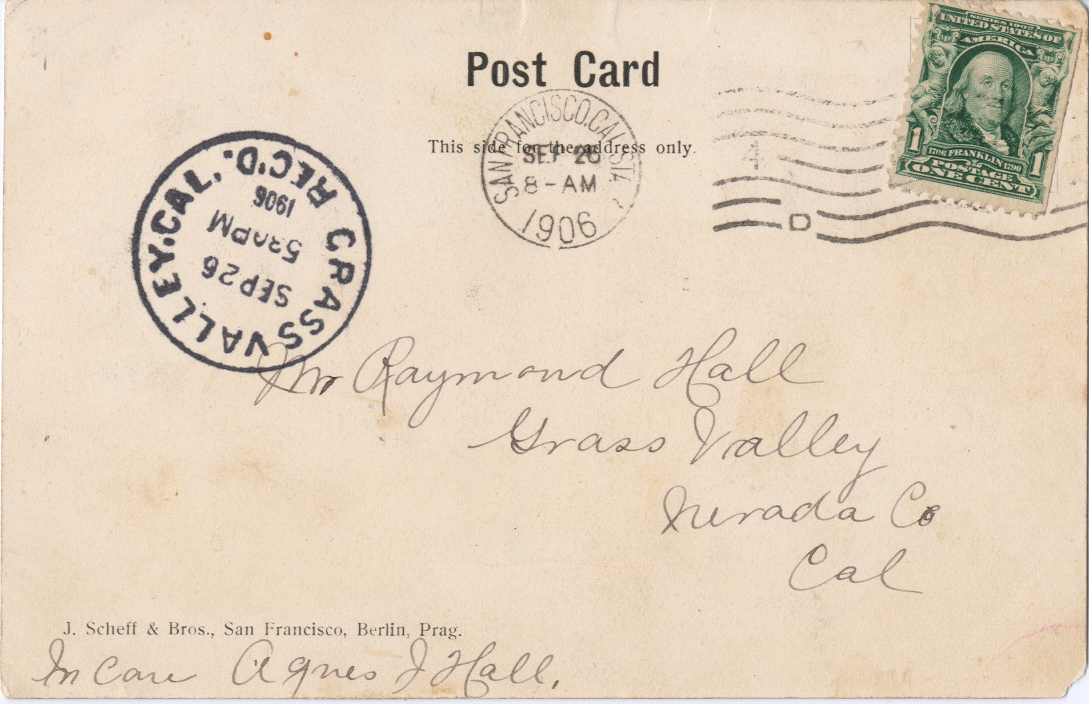 Post Card
This side for the address only.
SERIES 1902
UNITED STATES OF
AMERICA
1706 FRANKLIN 1790
1 1
POSTAGE
ONE CENT
SAN FRANCISCO, CAL.
SEP 26
8-AM
1906
D
GRASS VALLEY, CAL. REC'D.
SEP 26
530PM
1906
Mr Raymond Hall
Grass Valley
Nevada Co
Cal
J. Scheff & Bros., San Francisco, Berlin, Prag.
In care Agnes J Hall,